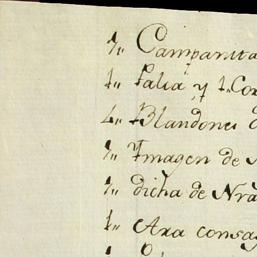 1,, Campanita
1,, Palia y 1,, Cor
4,, Blandones
1,, Ymagen de
1,, dicha de Nra
1,, Ara consag
1,,